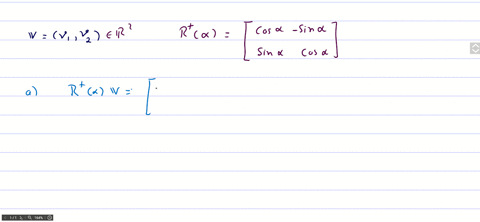 𝕧 = (v₁, v₂) ∈ ℝ² R⁺(α) = [ cos α -Sin α
Sin α cos α ]
a) R⁺(α) 𝕧 = [